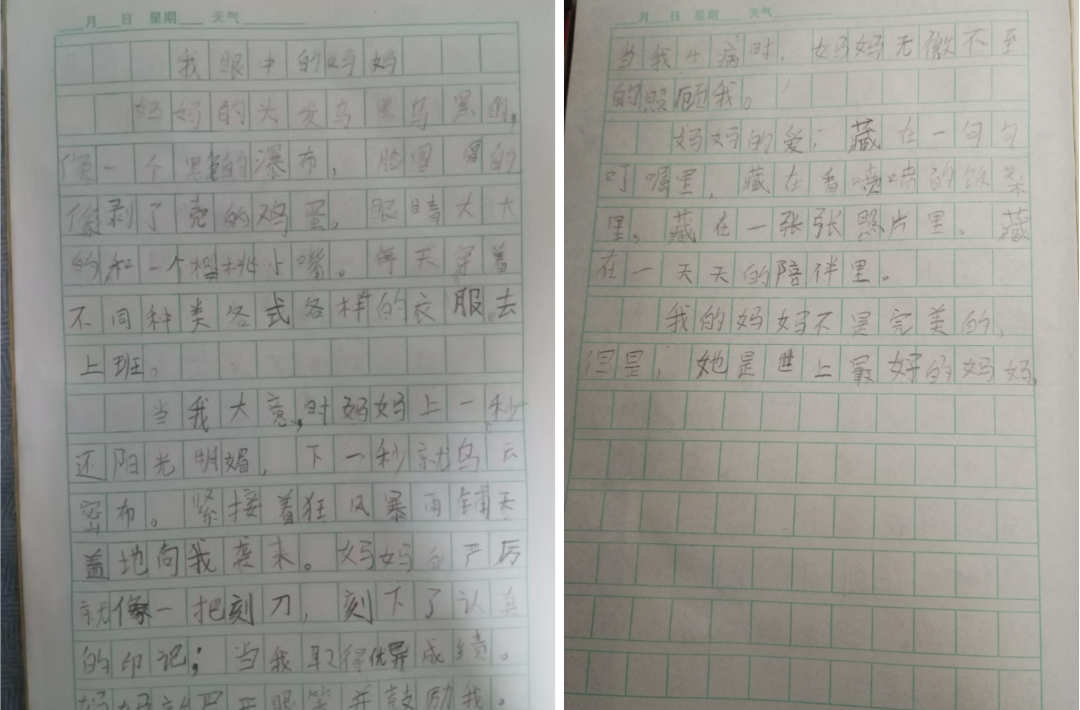 月 日 星期 天气
我眼中的妈妈
妈妈的头发乌黑乌黑的,
像一个黑色的瀑布,脸圆圆的
像剥了壳的鸡蛋,眼睛大大
的和一个樱桃小嘴。每天穿着
不同种类各式各样的衣服去
上班。
当我大意,时妈妈上一秒
还阳光明媚,下一秒就乌云
密布。紧接着狂风暴雨铺天
盖地向我袭来。妈妈的严厉
就像一把刻刀,刻下了认真
的印记;当我取得优异成绩。
妈妈就眉开眼笑并鼓励我。
月 日 星期 天气
当我生病时,妈妈无微不至
的照顾我。
妈妈的爱,藏在一句句
叮嘱里,藏在香喷喷的饭菜
里,藏在一张张照片里。藏
在一天天的陪伴里。
我的妈妈不是完美的,
但是,她是世上最好的妈妈。